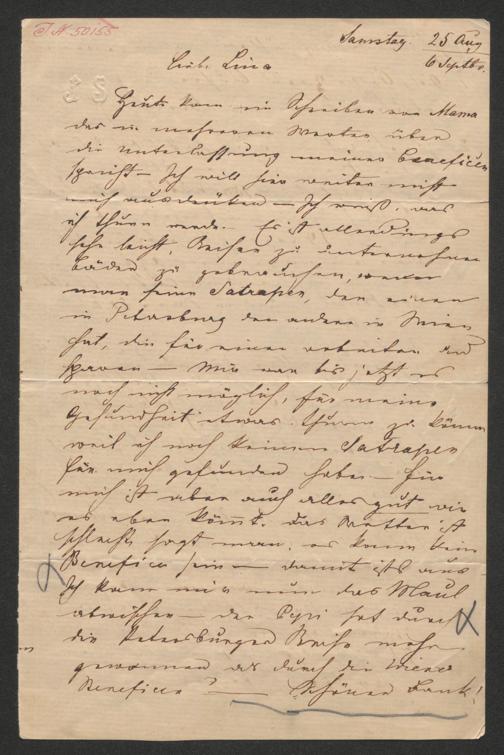 J.N. 50155
Samstag. 25 Aug
6 Septbr.
Liebe Lina
Heute kam ein Schreiben von Mama
das in mehreren Worten über
die Unterlassung meines Beneficen
spricht — Ich will hier weiter nicht
mich ausdeuten — Ich weiß, was
ich thun werde. Es ist allerdings
sehr leicht, Reisen zu unternehmen
Bäder zu gebrauchen, wenn
man seine Satrapen, den einen
in Petersburg den andern in Wien
hat, die für einen arbeiten und
sparen — Mir war bis jetzt es
noch nicht möglich, für meine
Gesundheit etwas thun zu können
weil ich noch keinen Satrapen
für mich gefunden habe — für
mich ist aber auch alles gut wie
es eben kömmt. Das Wetter ist
schlecht sagt man, es kann kein
Benefice sein — damit ists aus
Ich kann mir nun das Maul
abwischen — der Pepi hat durch
die Petersburger Reise mehr
gewonnen als durch die Wiener
Beneficen? — Schöner Dank!